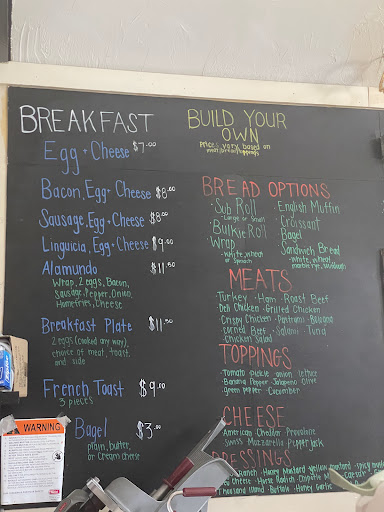 BREAKFAST
Egg + Cheese $7.00
Bacon, Egg + Cheese $8.00
Sausage, Egg + Cheese $8.00
Linguicia, Egg + Cheese $9.00
Alamundo $11.50
Wrap, 2 eggs, Bacon,
Sausage, Pepper, Onion,
Homefries, Cheese
Breakfast Plate $11.50
2 eggs (cooked any way),
choice of meat, toast,
and side
French Toast $9.00
3 pieces
Bagel $3.00
plain, butter,
or Cream cheese
WARNING
BUILD YOUR
OWN
Prices vary based on
BREAD OPTIONS
· Sub Roll
Large or Small
· Bulkie Roll
· Wrap
· white, wheat
or Spinach
· English Muffin
· Croissant
· Bagel
· Sandwich Bread
· white, wheat,
marble rye,
MEATS
Turkey · Ham · Roast Beef
Deli Chicken · Grilled Chicken
· Crispy Chicken · Pastrami · Bologna
corned Beef · Salami · Tuna
· Chicken Salad
TOPPINGS
Tomato · pickle · onion · lettuce
· Banana Pepper · Jalapeno · Olive
green pepper · Cucumber
CHEESE
American · Cheddar · Provolone
Swiss · Mozzarella · Pepperjack
DRESSINGS
Ranch · Honey Mustard · yellow mustard · spicy
Cheese · Horse Radish · Chipotle
Thousand Island · Buffalo · Honey Garlic